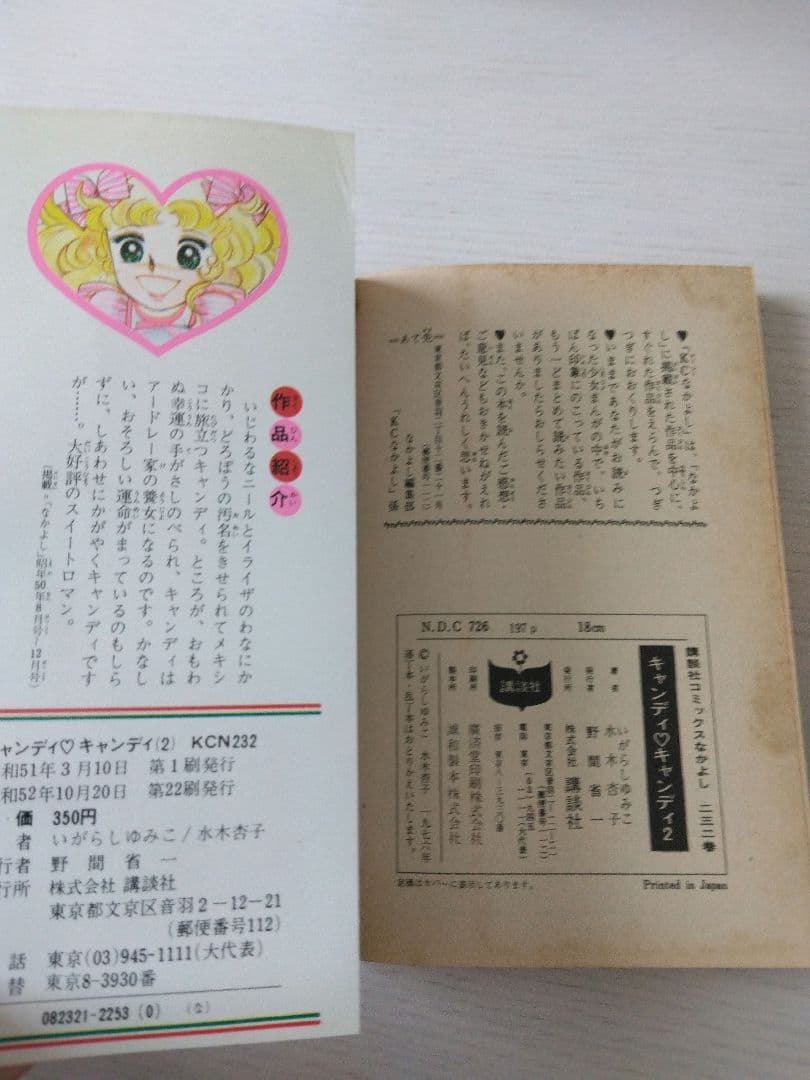 作品紹介
いじわるなニールとイライザのわなにか
かり、どろぼうの汚名をきせられてメキシ
コに旅立つキャンディ。ところが、おもわ
ぬ幸運の手がさしのべられ、キャンディは
アードレー家の養女になるのです。かなし
い、おそろしい運命がまっているのもしら
ずに、しあわせにかがやくキャンディです
が……。大好評のスイートロマン。
「掲載=『なかよし』昭年50年8月号~12月号」
ャンディ♡キャンディ(2) KCN232
和51年3月10日 第1刷発行
和52年10月20日 第22刷発行
価 350円
者 いがらしゆみこ/水木杏子
行者 野間省一
行所 株式会社 講談社
東京都文京区音羽2-12-21
(郵便番号112)
話 東京(03)945-1111(大代表)
替 東京8-3930番
082321-2253 (0) (な)
♥『KCなかよし』は、『なかよ
し』に掲載された作品を中心に、
すぐれた作品をえらんで、つぎ
つぎにおおくりします。
♥いままであなたがお読みに
なった少女まんがの中で、いち
ばん印象にのこっている作品、
もう一どまとめて読みたい作品
がありましたらおしらせくださ
いませんか。
♥また、この本を読んだご感想・
ご意見などもおきかせねがえれ
ば、たいへんうれしく思います。
―あて先―
東京都文京区音羽二丁目十二番二十一号
(郵便番号一一二)
なかよし編集部
『KCなかよし』係
N.D.C 726 197p 18cm
講談社コミックスなかよし 二三二巻
キャンディ♡キャンディ2
著者 いがらしゆみこ
水木杏子
発行者 野間省一
発行所 株式会社 講談社
東京都文京区音羽二-一二-二一
(郵便番号一一二)
電話 東京(03)九四五-一一一一(大代表)
振替 東京八-三九三〇番
印刷所 廣済堂印刷株式会社
製本所 誠和製本株式会社
©いがらしゆみこ 水木杏子 一九七六年
落丁本・乱丁本はおとりかえいたします。
講談社
定価はカバーに表示してあります。
Printed in Japan